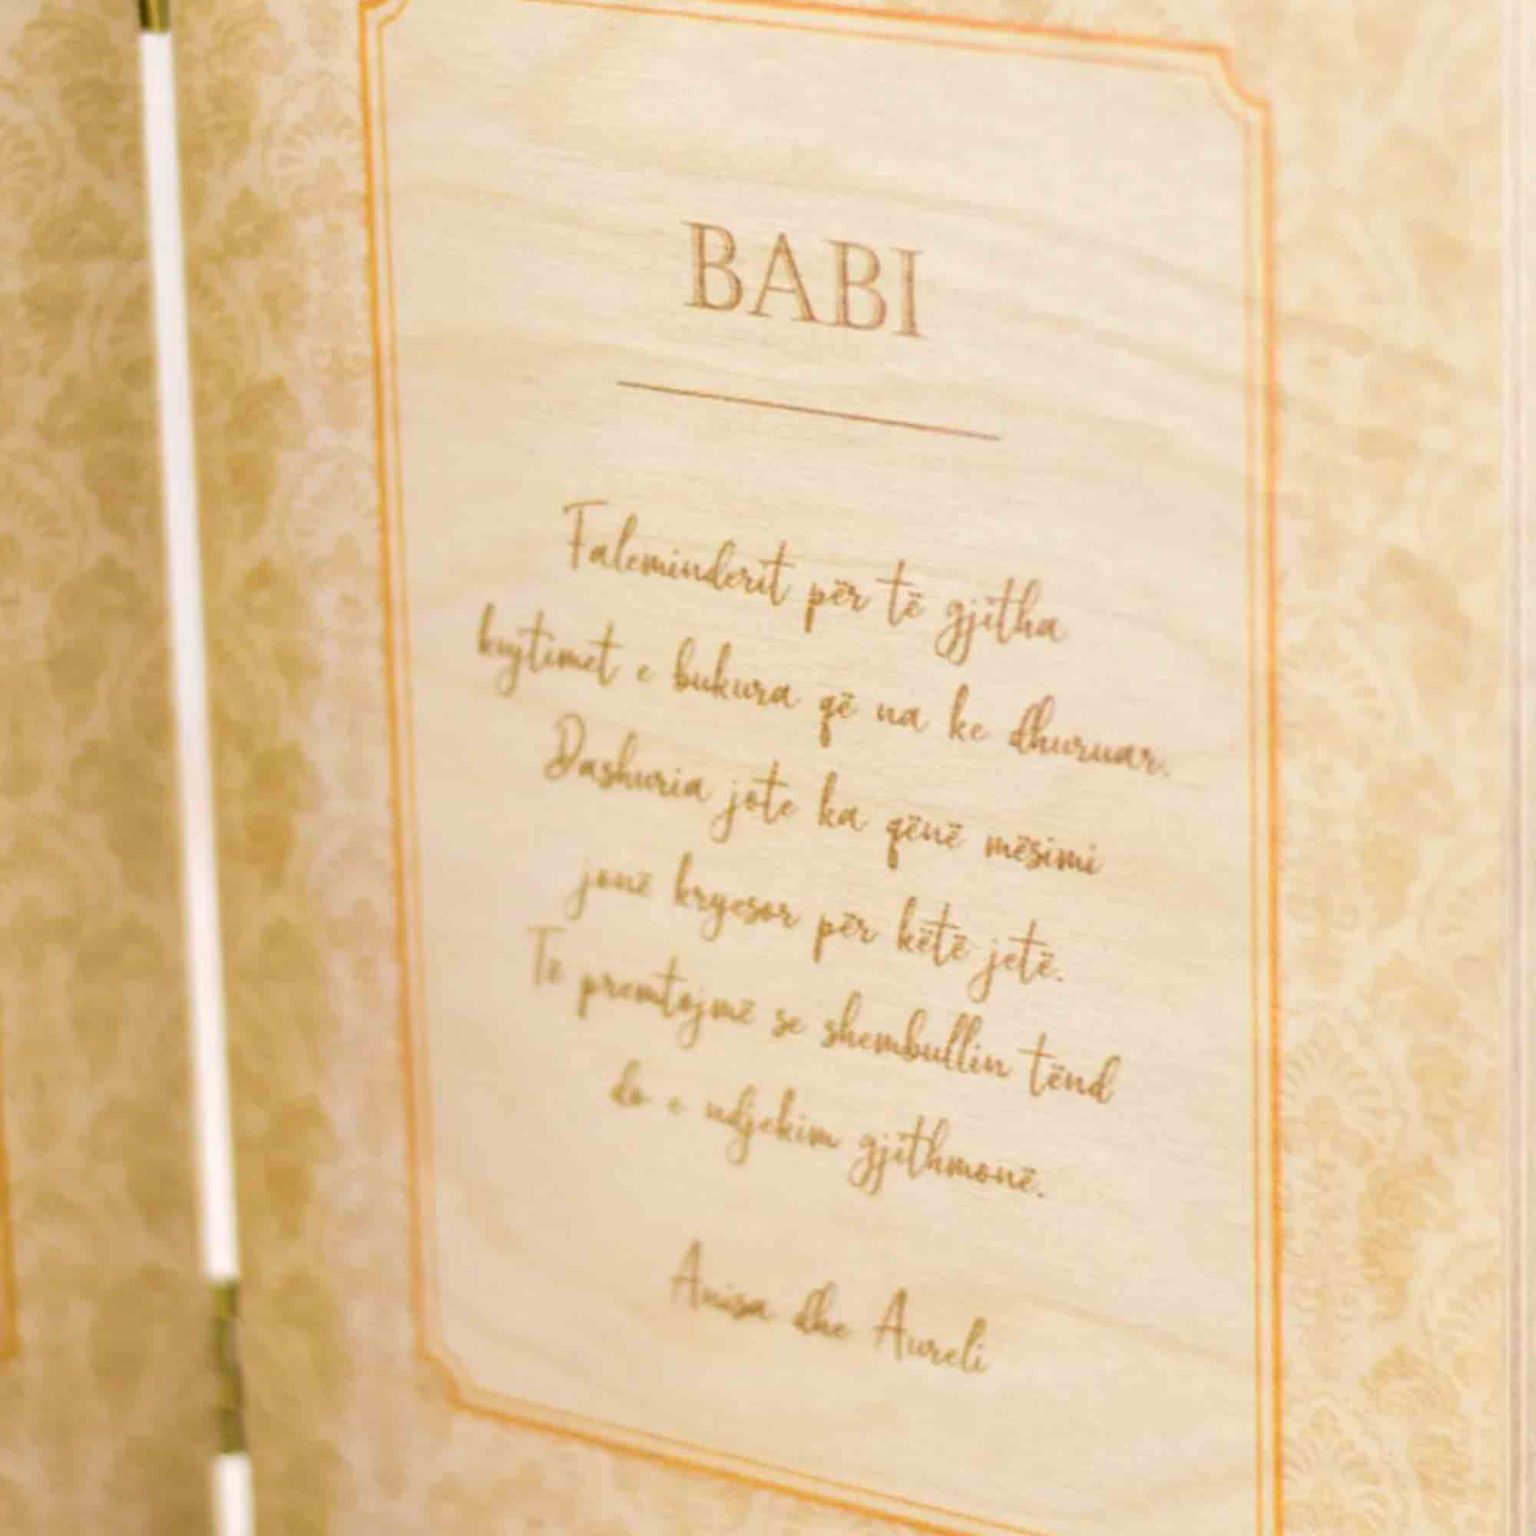 BABI
Faleminderit për të gjitha
kujtimet e bukura që na ke dhuruar.
Dashuria jote ka qënë mësimi
jonë kryesor për këtë jetë.
Të premtojmë se shembullin tënd
do e ndjekim gjithmonë.
Anisa dhe Aureli